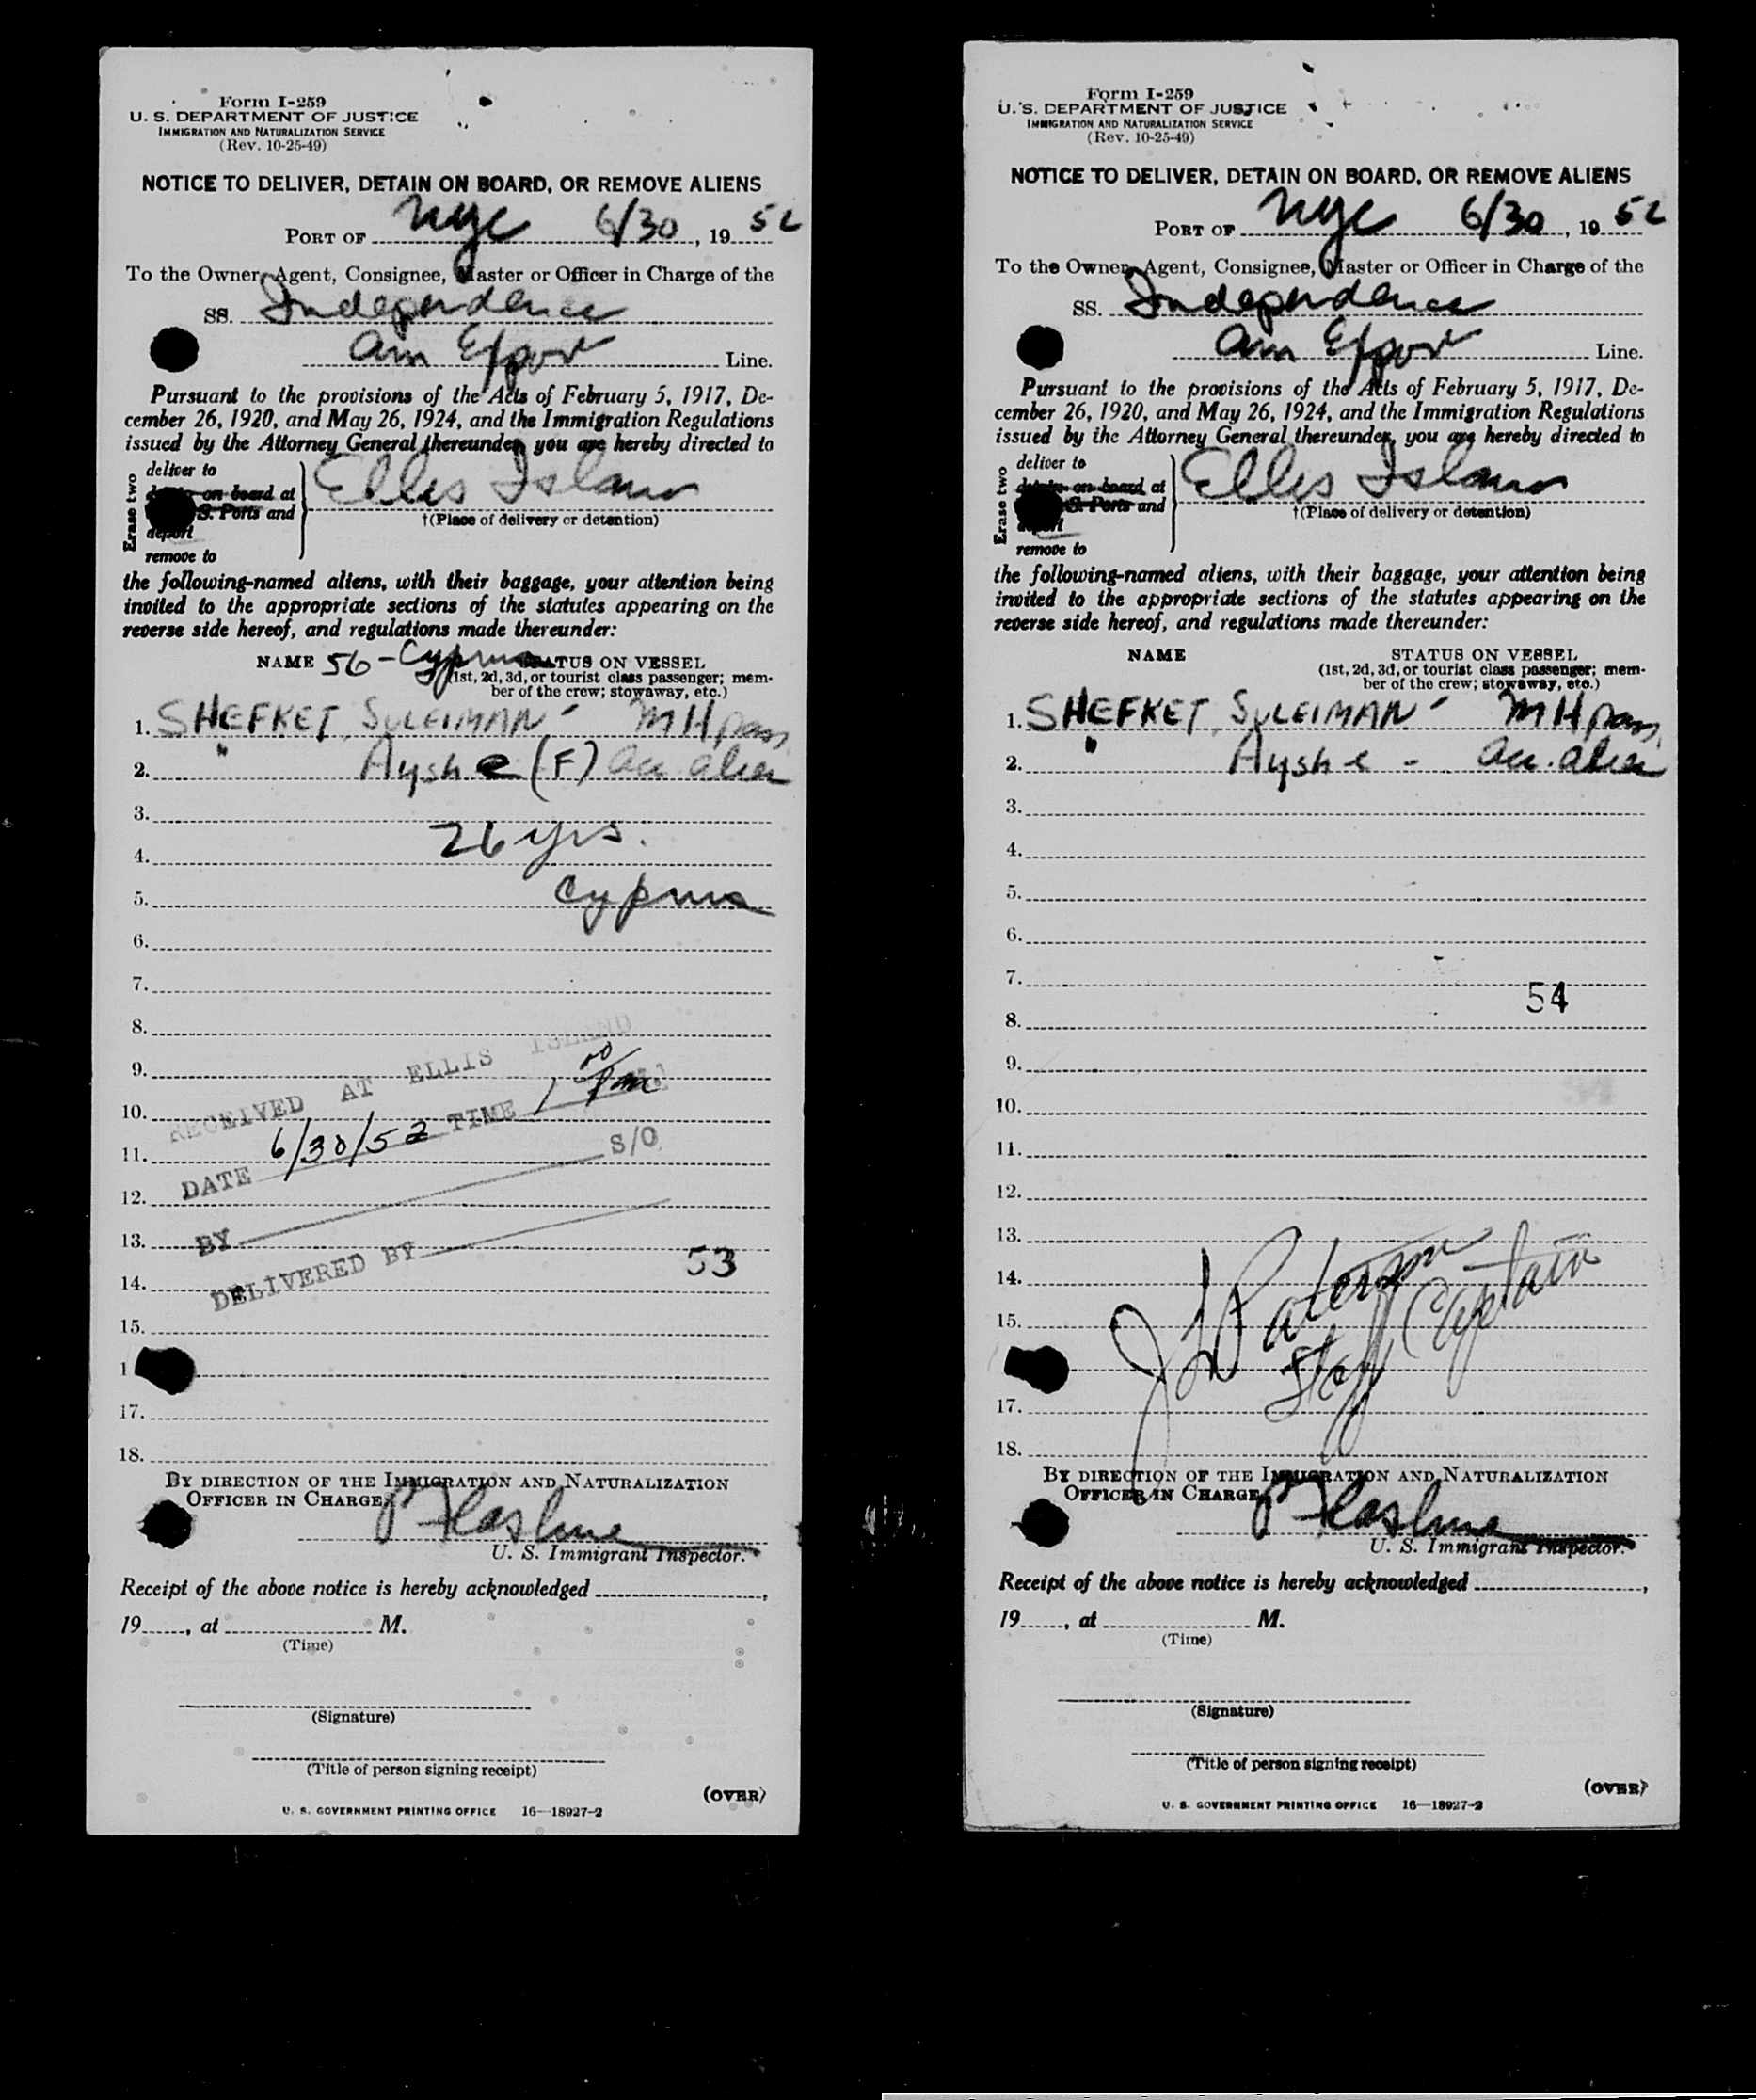 Form I-259
U. S. DEPARTMENT OF JUSTICE
IMMIGRATION AND NATURALIZATION SERVICE
(Rev. 10-25-49)
NOTICE TO DELIVER, DETAIN ON BOARD, OR REMOVE ALIENS
PORT OF NYC 6/30, 1952
To the Owner, Agent, Consignee, Master or Officer in Charge of the
SS. Independence
Am Export Line.
Pursuant to the provisions of the Acts of February 5, 1917, De-
cember 26, 1920, and May 26, 1924, and the Immigration Regulations
issued by the Attorney General thereunder, you are hereby directed to
Erase two
deliver to
on board at
S. Ports and
deport
remove to
Ellis Island
†(Place of delivery or detention)
the following-named aliens, with their baggage, your attention being
invited to the appropriate sections of the statutes appearing on the
reverse side hereof, and regulations made thereunder:
NAME 56-Cyprus STATUS ON VESSEL
(1st, 2d, 3d, or tourist class passenger; mem-
ber of the crew; stowaway, etc.)
1. SHEFKET, SULEIMAN - MH pass
2. " Ayshe (F) acc. alien
3.
4. 26 yrs.
5. Cyprus
6.
7.
8.
9.
10.
11.
12.
13.
14.
15.
1
17.
18.
RECEIVED AT ELLIS ISLAND
DATE 6/30/52 TIME 1 00 Pm
BY S/O
DELIVERED BY
53
BY DIRECTION OF THE IMMIGRATION AND NATURALIZATION
OFFICER IN CHARGE,
U. S. Immigrant Inspector.
Receipt of the above notice is hereby acknowledged ,
19 , at M.
(Time)
(Signature)
(Title of person signing receipt)
(OVER)
U. S. GOVERNMENT PRINTING OFFICE 16—18927-2
Form I-259
U. S. DEPARTMENT OF JUSTICE
IMMIGRATION AND NATURALIZATION SERVICE
(Rev. 10-25-49)
NOTICE TO DELIVER, DETAIN ON BOARD, OR REMOVE ALIENS
PORT OF NYC 6/30, 1952
To the Owner, Agent, Consignee, Master or Officer in Charge of the
SS. Independence
Am Export Line.
Pursuant to the provisions of the Acts of February 5, 1917, De-
cember 26, 1920, and May 26, 1924, and the Immigration Regulations
issued by the Attorney General thereunder, you are hereby directed to
Erase two
deliver to
on board at
S. Ports and
deport
remove to
Ellis Island
†(Place of delivery or detention)
the following-named aliens, with their baggage, your attention being
invited to the appropriate sections of the statutes appearing on the
reverse side hereof, and regulations made thereunder:
NAME STATUS ON VESSEL
(1st, 2d, 3d, or tourist class passenger; mem-
ber of the crew; stowaway, etc.)
1. SHEFKET, SULEIMAN - MH pass
2. " Ayshe - acc. alien
3.
4.
5.
6.
7.
54
8.
9.
10.
11.
12.
13.
14.
15.
17.
18.
J L Paterson
Staff Captain
BY DIRECTION OF THE IMMIGRATION AND NATURALIZATION
OFFICER IN CHARGE,
U. S. Immigrant Inspector.
Receipt of the above notice is hereby acknowledged ,
19 , at M.
(Time)
(Signature)
(Title of person signing receipt)
(OVER)
U. S. GOVERNMENT PRINTING OFFICE 16—18927-2